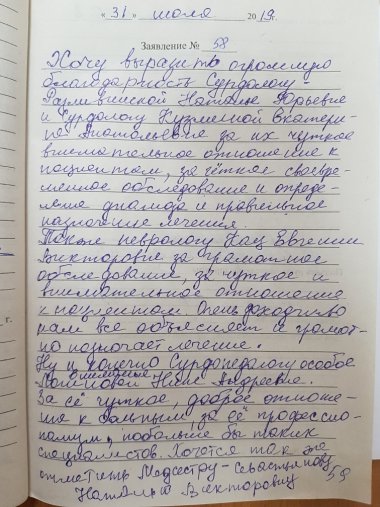 « 31 » июля 2019 г.
Заявление № 58
Хочу выразить огромную
благодарность Сурдологу -
Наталье Юрьевне
и Сурдологу Кузьминой Екатери-
не Анатольевне за их чуткое
внимательное отношение к
пациентам, за чёткое своевре-
менное обследование и опреде-
ление диагноза и правильное
назначение лечения.
Также неврологу Кац Евгении
Викторовне за грамотное
обследование, за чуткое и
внимательное отношение
к пациентам. Очень доходчиво
нам все объясняет и грамот-
но назначает лечение.
Ну и конечно Сурдопедагогу особое
внимание
Андреевне.
За её чуткое, доброе отноше-
ние к больным, за её профессио-
нализм, побольше бы таких
специалистов. Хочется так же
отметить Медсестру -
Наталью Викторовну
59
г.